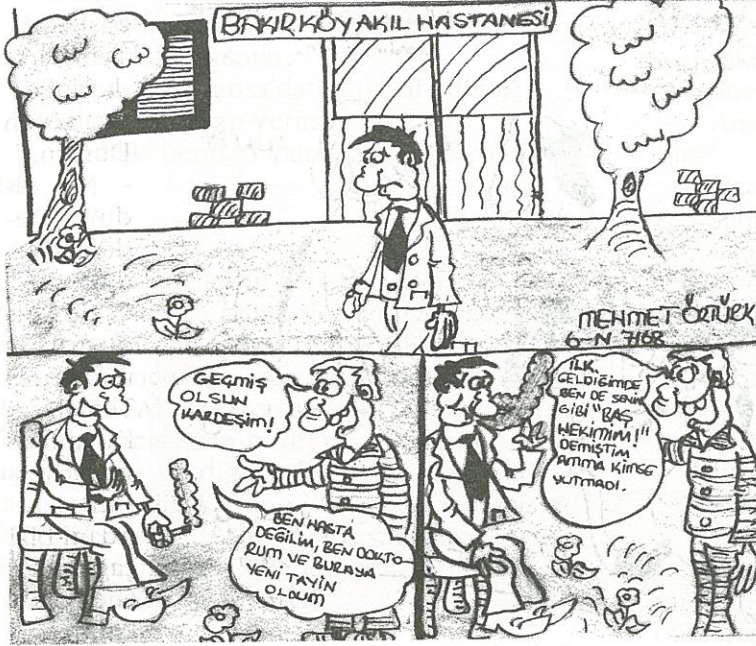 BAKIRKÖY AKIL HASTANESİ
MEHMET ÖZTÜRK
6-N 7168
GEÇMİŞ
OLSUN
KARDEŞİM!
BEN HASTA
DEĞİLİM, BEN DOKTO
RUM VE BURAYA
YENİ TAYİN
OLDUM
İLK
GELDİĞİMDE
BEN DE SENİN
GİBİ "BAŞ
HEKİMİM!"
DEMİŞTİM
AMMA KİMSE
YUTMADI.